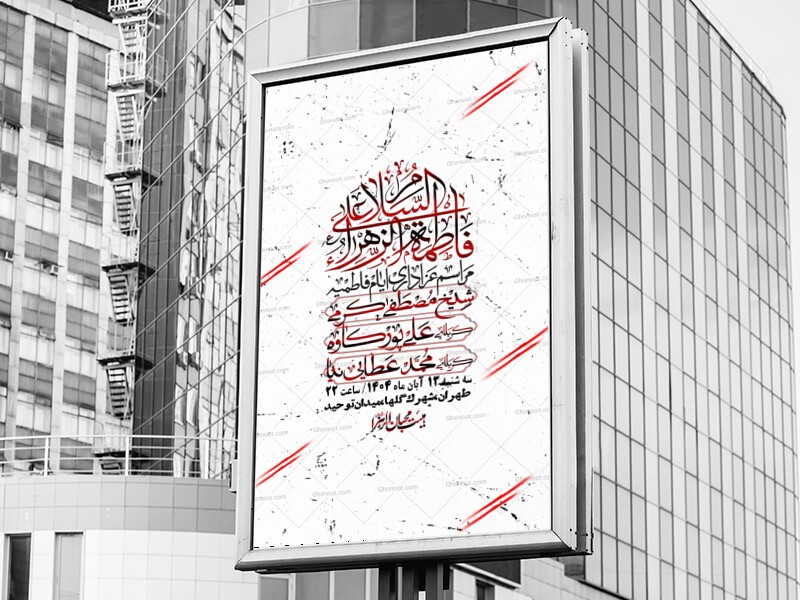 السلام علی
فاطمة الزهراء
مراسم عزاداری ایام فاطمیه
شیخ مصطفی کرمی
کربلائی علی پورکاوه
کربلائی محمد عطایی نیا
سه شنبه ۱۳ آبان ماه ۱۴۰۴ / ساعت ۲۲
طهران،شهرک گلها،میدان توحید
هیئت محبان الزهرا
Ghonoot.com